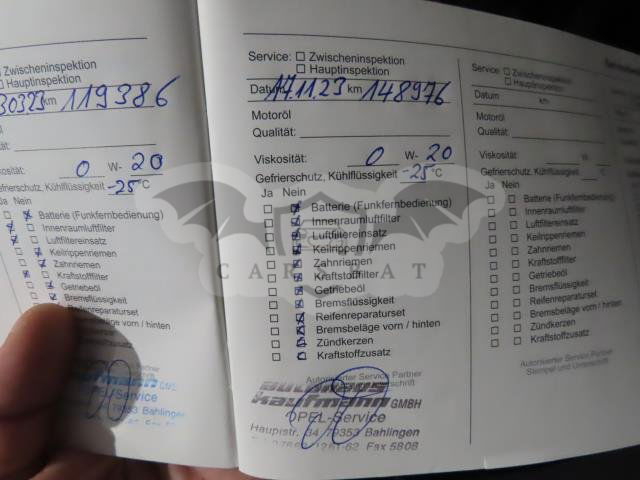 Zwischeninspektion
Hauptinspektion
km 119386
Motoröl
Qualität:
Viskosität: 0 W- 20
Gefrierschutz, Kühlflüssigkeit -25°C
Ja Nein
Batterie (Funkfernbedienung)
Innenraumluftfilter
Luftfiltereinsatz
Keilrippenriemen
Zahnriemen
Kraftstofffilter
Getriebeöl
Bremsflüssigkeit
Reifenreparaturset
Bremsbeläge vorn / hinten
Service
79353 Bahlingen
Service: Zwischeninspektion
Hauptinspektion
Datum 17.11.23 km 148976
Motoröl
Qualität:
Viskosität: 0 W- 20
Gefrierschutz, Kühlflüssigkeit -25°C
Ja Nein
Batterie (Funkfernbedienung)
Innenraumluftfilter
Luftfiltereinsatz
Keilrippenriemen
Zahnriemen
Kraftstofffilter
Getriebeöl
Bremsflüssigkeit
Reifenreparaturset
Bremsbeläge vorn / hinten
Zündkerzen
Kraftstoffzusatz
Autorisierter Service Partner
Autohaus
Kaufmann GMBH
OPEL-Service
Hauptstr. 34 79353 Bahlingen
Fax 5808
Service: Zwischeninspektion
Hauptinspektion
Datum km
Motoröl
Qualität:
Viskosität: W-
Gefrierschutz, Kühlflüssigkeit °C
Ja Nein
Batterie (Funkfernbedienung)
Innenraumluftfilter
Luftfiltereinsatz
Keilrippenriemen
Zahnriemen
Kraftstofffilter
Getriebeöl
Bremsflüssigkeit
Reifenreparaturset
Bremsbeläge vorn / hinten
Zündkerzen
Kraftstoffzusatz
Autorisierter Service Partner
Stempel und Unterschrift